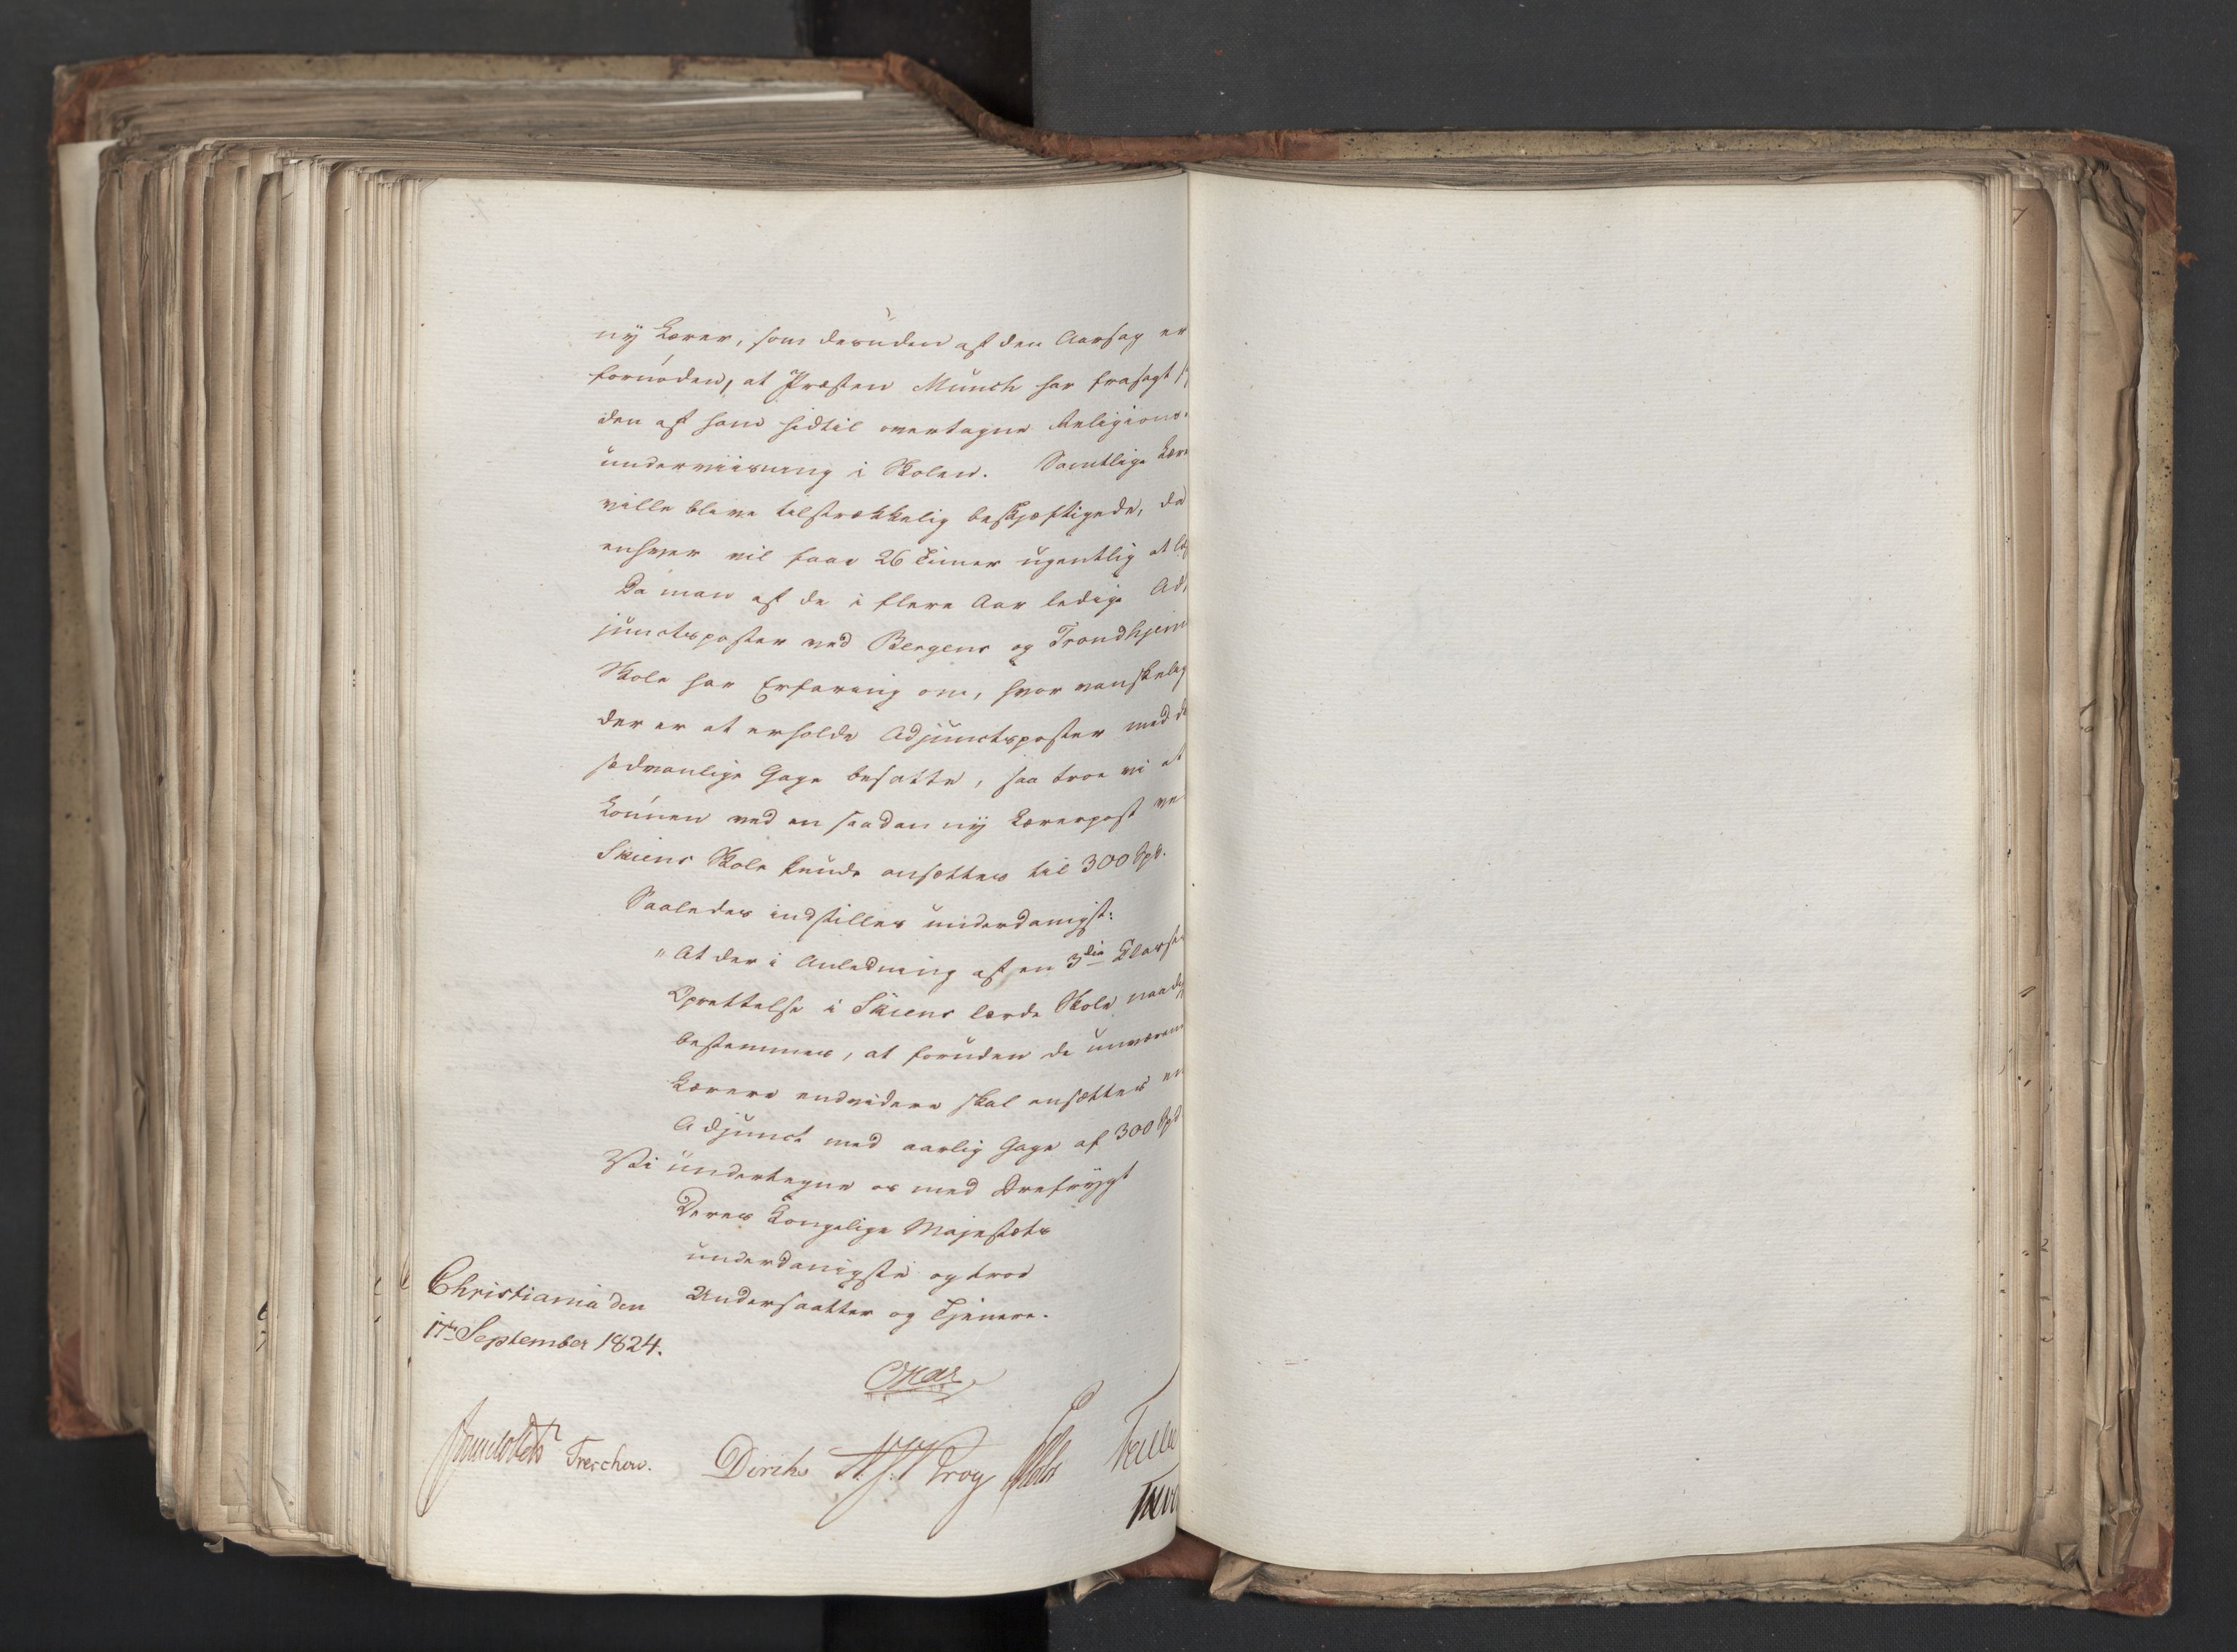 ny Lærer, som desuden af den Aarsag er
fornøden, at Præsten Munch har frasagt
den af ham hidtil overtagne Religions-
underviisning i Skolen. Samtlige Lære
ville blive tilstrækkelig beskjæftigede, da
enhver vil faae 26 Timer ugentlig at
Da man af de i flere Aar ledige Ad-
junctsposter ved Bergens og Trondhjems
Skole har Erfaring om, hvor vanskelig
der er at erholde Adjunctsposter med de
sædvanlige Gage besatte, saa troe vi at
Lønnen ved en saadan ny Lærerpost ve
Skiens Skole burde ansættes til 300 Spd.
Saaledes indstilles underdanigst:
"At der i Anledning af en 3die Classes
Oprettelse i Skiens lærde Skole naadigst
bestemmes, at foruden de nuværen
Lærere endvidere skal ansættes en
Adjunct med aarlig Gage af 300 Spd
Vi undertegne os med Ærefrygt
Deres Kongelige Majestæts
underdanigste og troe
Undersaatter og Tjenere.
Christiania den
17de September 1824.
Oscar
Treschow. Diriks Krog